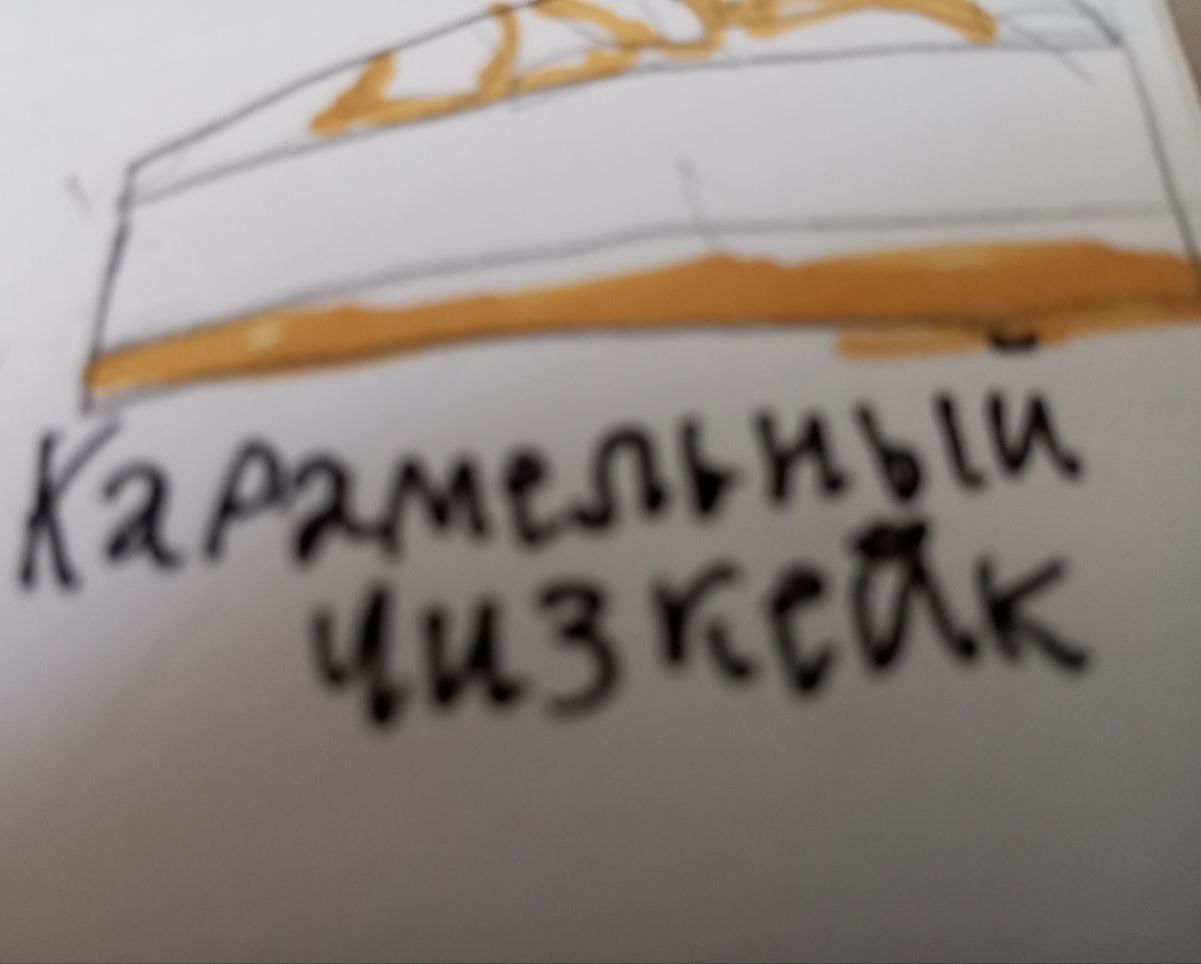 Карамельный
чизкейк